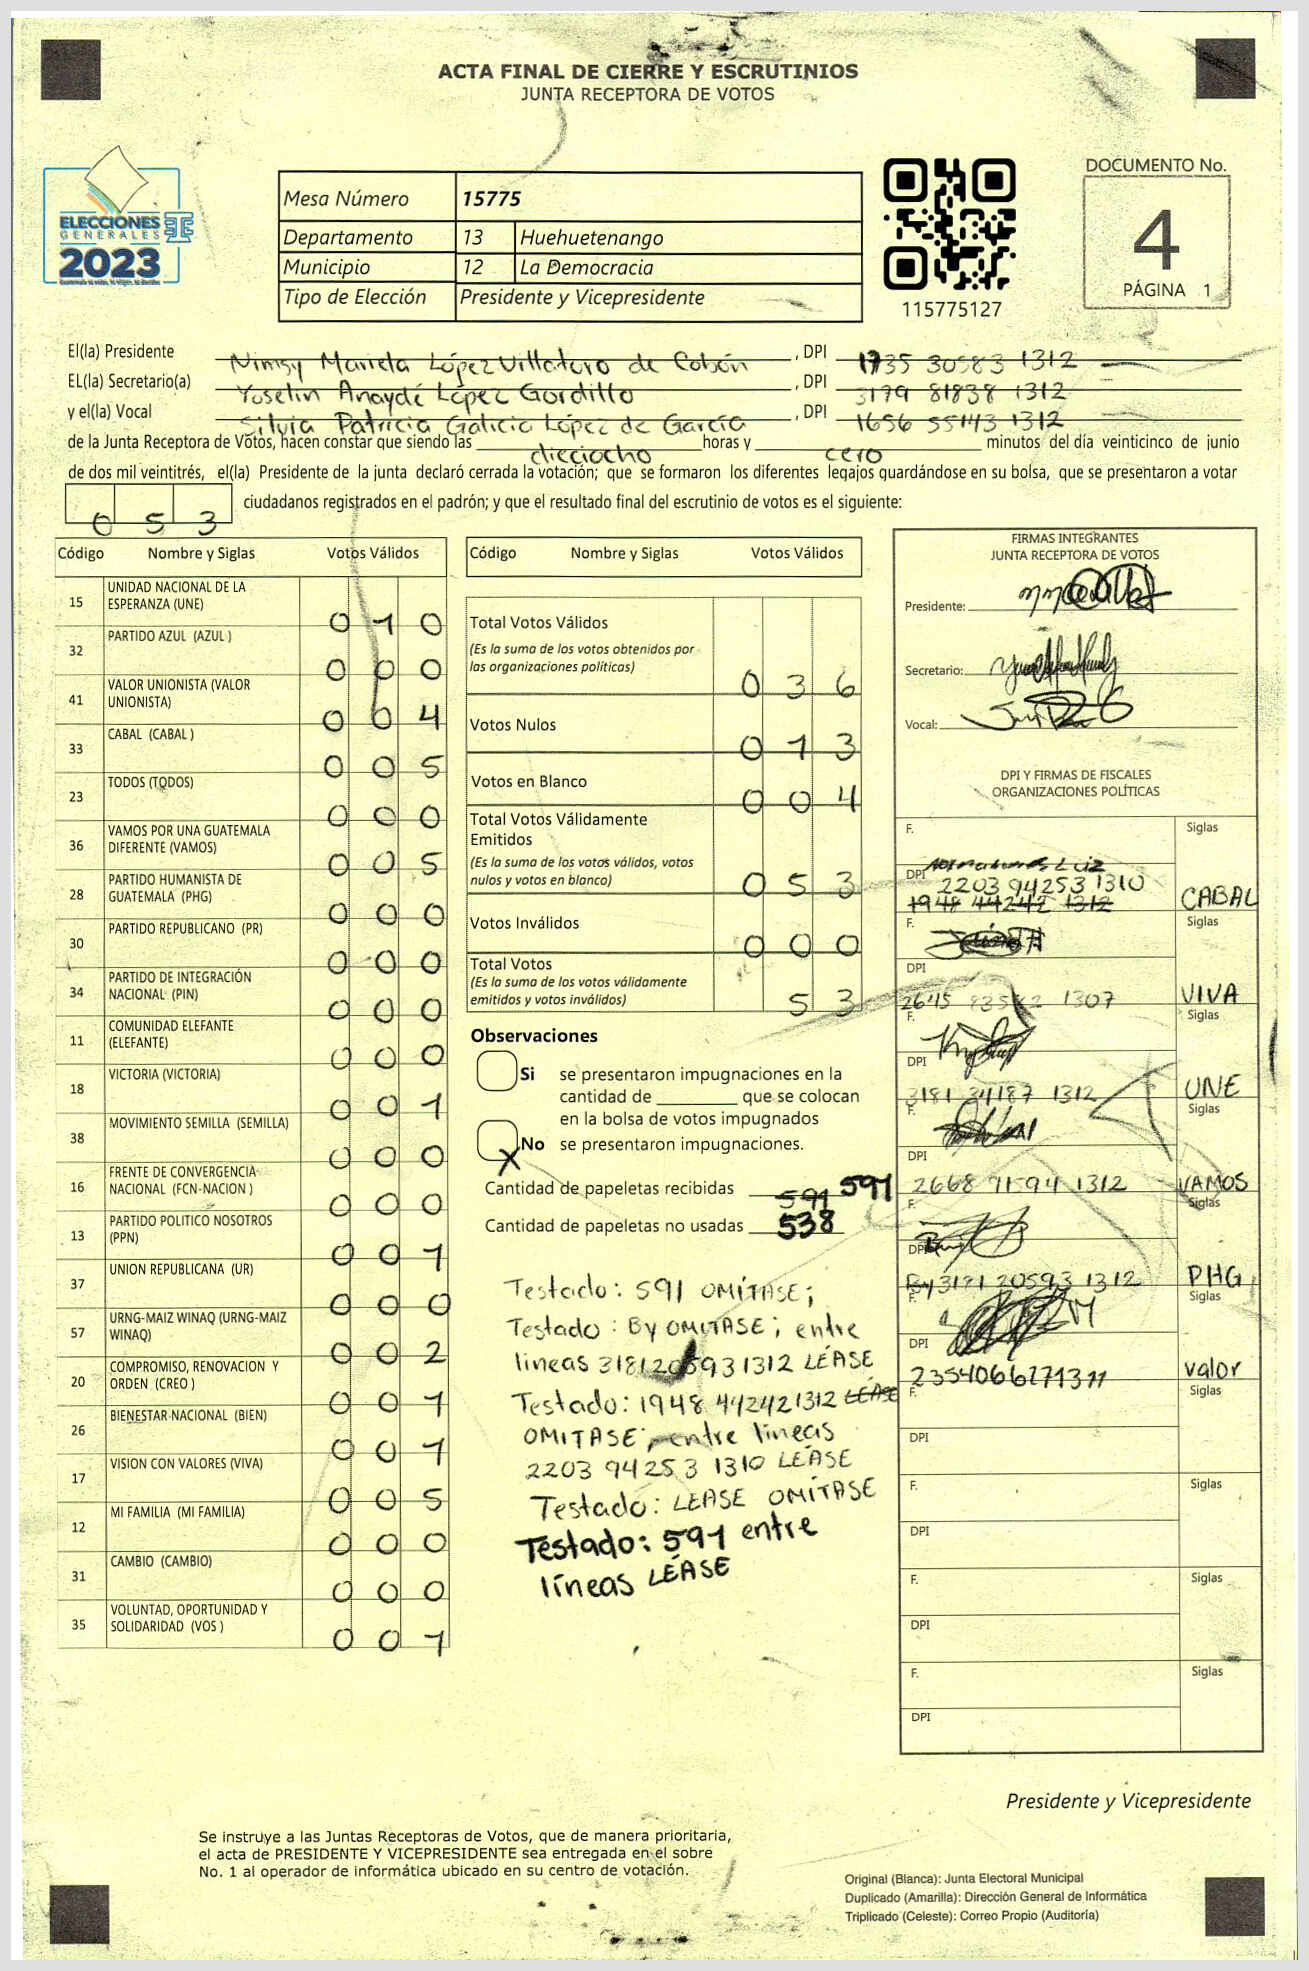 ACTA FINAL DE CIERRE Y ESCRUTINIOS
JUNTA RECEPTORA DE VOTOS
ELECCIONES
GENERALES
2023
Mesa Número 15775
Departamento 13 Huehuetenango
Municipio 12 La Democracia
Tipo de Elección Presidente y Vicepresidente
115775127
DOCUMENTO No.
4
PÁGINA 1
El(la) Presidente Nimsy Mariela López Villatoro de Cobón, DPI 1735 30583 1312
EL(la) Secretario(a) Yoselin Anaydé López Gordillo, DPI 3179 81838 1312
y el(la) Vocal Silvia Patricia Galicia López de García, DPI 1656 55143 1312
de la Junta Receptora de Votos, hacen constar que siendo las dieciocho horas y cero minutos del día veinticinco de junio
de dos mil veintitrés, el(la) Presidente de la junta declaró cerrada la votación; que se formaron los diferentes legajos guardándose en su bolsa, que se presentaron a votar
0 5 3 ciudadanos registrados en el padrón; y que el resultado final del escrutinio de votos es el siguiente:
Código Nombre y Siglas Votos Válidos
15 UNIDAD NACIONAL DE LA ESPERANZA (UNE) 0 1 0
32 PARTIDO AZUL (AZUL ) 0 0 0
41 VALOR UNIONISTA (VALOR UNIONISTA) 0 0 4
33 CABAL (CABAL ) 0 0 5
23 TODOS (TODOS) 0 0 0
36 VAMOS POR UNA GUATEMALA DIFERENTE (VAMOS) 0 0 5
28 PARTIDO HUMANISTA DE GUATEMALA (PHG) 0 0 0
30 PARTIDO REPUBLICANO (PR) 0 0 0
34 PARTIDO DE INTEGRACIÓN NACIONAL (PIN) 0 0 0
11 COMUNIDAD ELEFANTE (ELEFANTE) 0 0 0
18 VICTORIA (VICTORIA) 0 0 1
38 MOVIMIENTO SEMILLA (SEMILLA) 0 0 0
16 FRENTE DE CONVERGENCIA NACIONAL (FCN-NACION ) 0 0 0
13 PARTIDO POLITICO NOSOTROS (PPN) 0 0 1
37 UNION REPUBLICANA (UR) 0 0 0
57 URNG-MAIZ WINAQ (URNG-MAIZ WINAQ) 0 0 2
20 COMPROMISO, RENOVACION Y ORDEN (CREO ) 0 0 1
26 BIENESTAR NACIONAL (BIEN) 0 0 1
17 VISION CON VALORES (VIVA) 0 0 5
12 MI FAMILIA (MI FAMILIA) 0 0 0
31 CAMBIO (CAMBIO) 0 0 0
35 VOLUNTAD, OPORTUNIDAD Y SOLIDARIDAD (VOS ) 0 0 1
Código Nombre y Siglas Votos Válidos
Total Votos Válidos
(Es la suma de los votos obtenidos por
las organizaciones políticas) 0 3 6
Votos Nulos 0 1 3
Votos en Blanco 0 0 4
Total Votos Válidamente
Emitidos
(Es la suma de los votos válidos, votos
nulos y votos en blanco) 0 5 3
Votos Inválidos 0 0 0
Total Votos
(Es la suma de los votos válidamente
emitidos y votos inválidos) 5 3
Observaciones
Si se presentaron impugnaciones en la
cantidad de ________ que se colocan
en la bolsa de votos impugnados
X No se presentaron impugnaciones.
Cantidad de papeletas recibidas 591 591
Cantidad de papeletas no usadas 538
Testado: 591 OMÍTASE;
Testado: By OMITASE; entre
lineas 3181205931312 LÉASE
Testado: 1948 442421312 LÉASE
OMITASE; entre lineas
2203 94253 1310 LEASE
Testado: LEASE OMÍTASE
Testado: 591 entre
líneas LÉASE
FIRMAS INTEGRANTES
JUNTA RECEPTORA DE VOTOS
Presidente:
Secretario:
Vocal:
DPI Y FIRMAS DE FISCALES
ORGANIZACIONES POLÍTICAS
F. Siglas
DPI 2203 94253 1310
1948 44242 1312 CABAL
F. Siglas
DPI
2645 1307 VIVA
F. Siglas
DPI
3181 34187 1312 UNE
F. Siglas
DPI
2668 91594 1312 VAMOS
F. Siglas
DPI
By 3181 20593 1312 PHG
F. Siglas
DPI
2354066271311 Valor
F. Siglas
DPI
F. Siglas
DPI
F. Siglas
DPI
F. Siglas
DPI
Presidente y Vicepresidente
Se instruye a las Juntas Receptoras de Votos, que de manera prioritaria,
el acta de PRESIDENTE Y VICEPRESIDENTE sea entregada en el sobre
No. 1 al operador de informática ubicado en su centro de votación.
Original (Blanca): Junta Electoral Municipal
Duplicado (Amarilla): Dirección General de Informática
Triplicado (Celeste): Correo Propio (Auditoría)